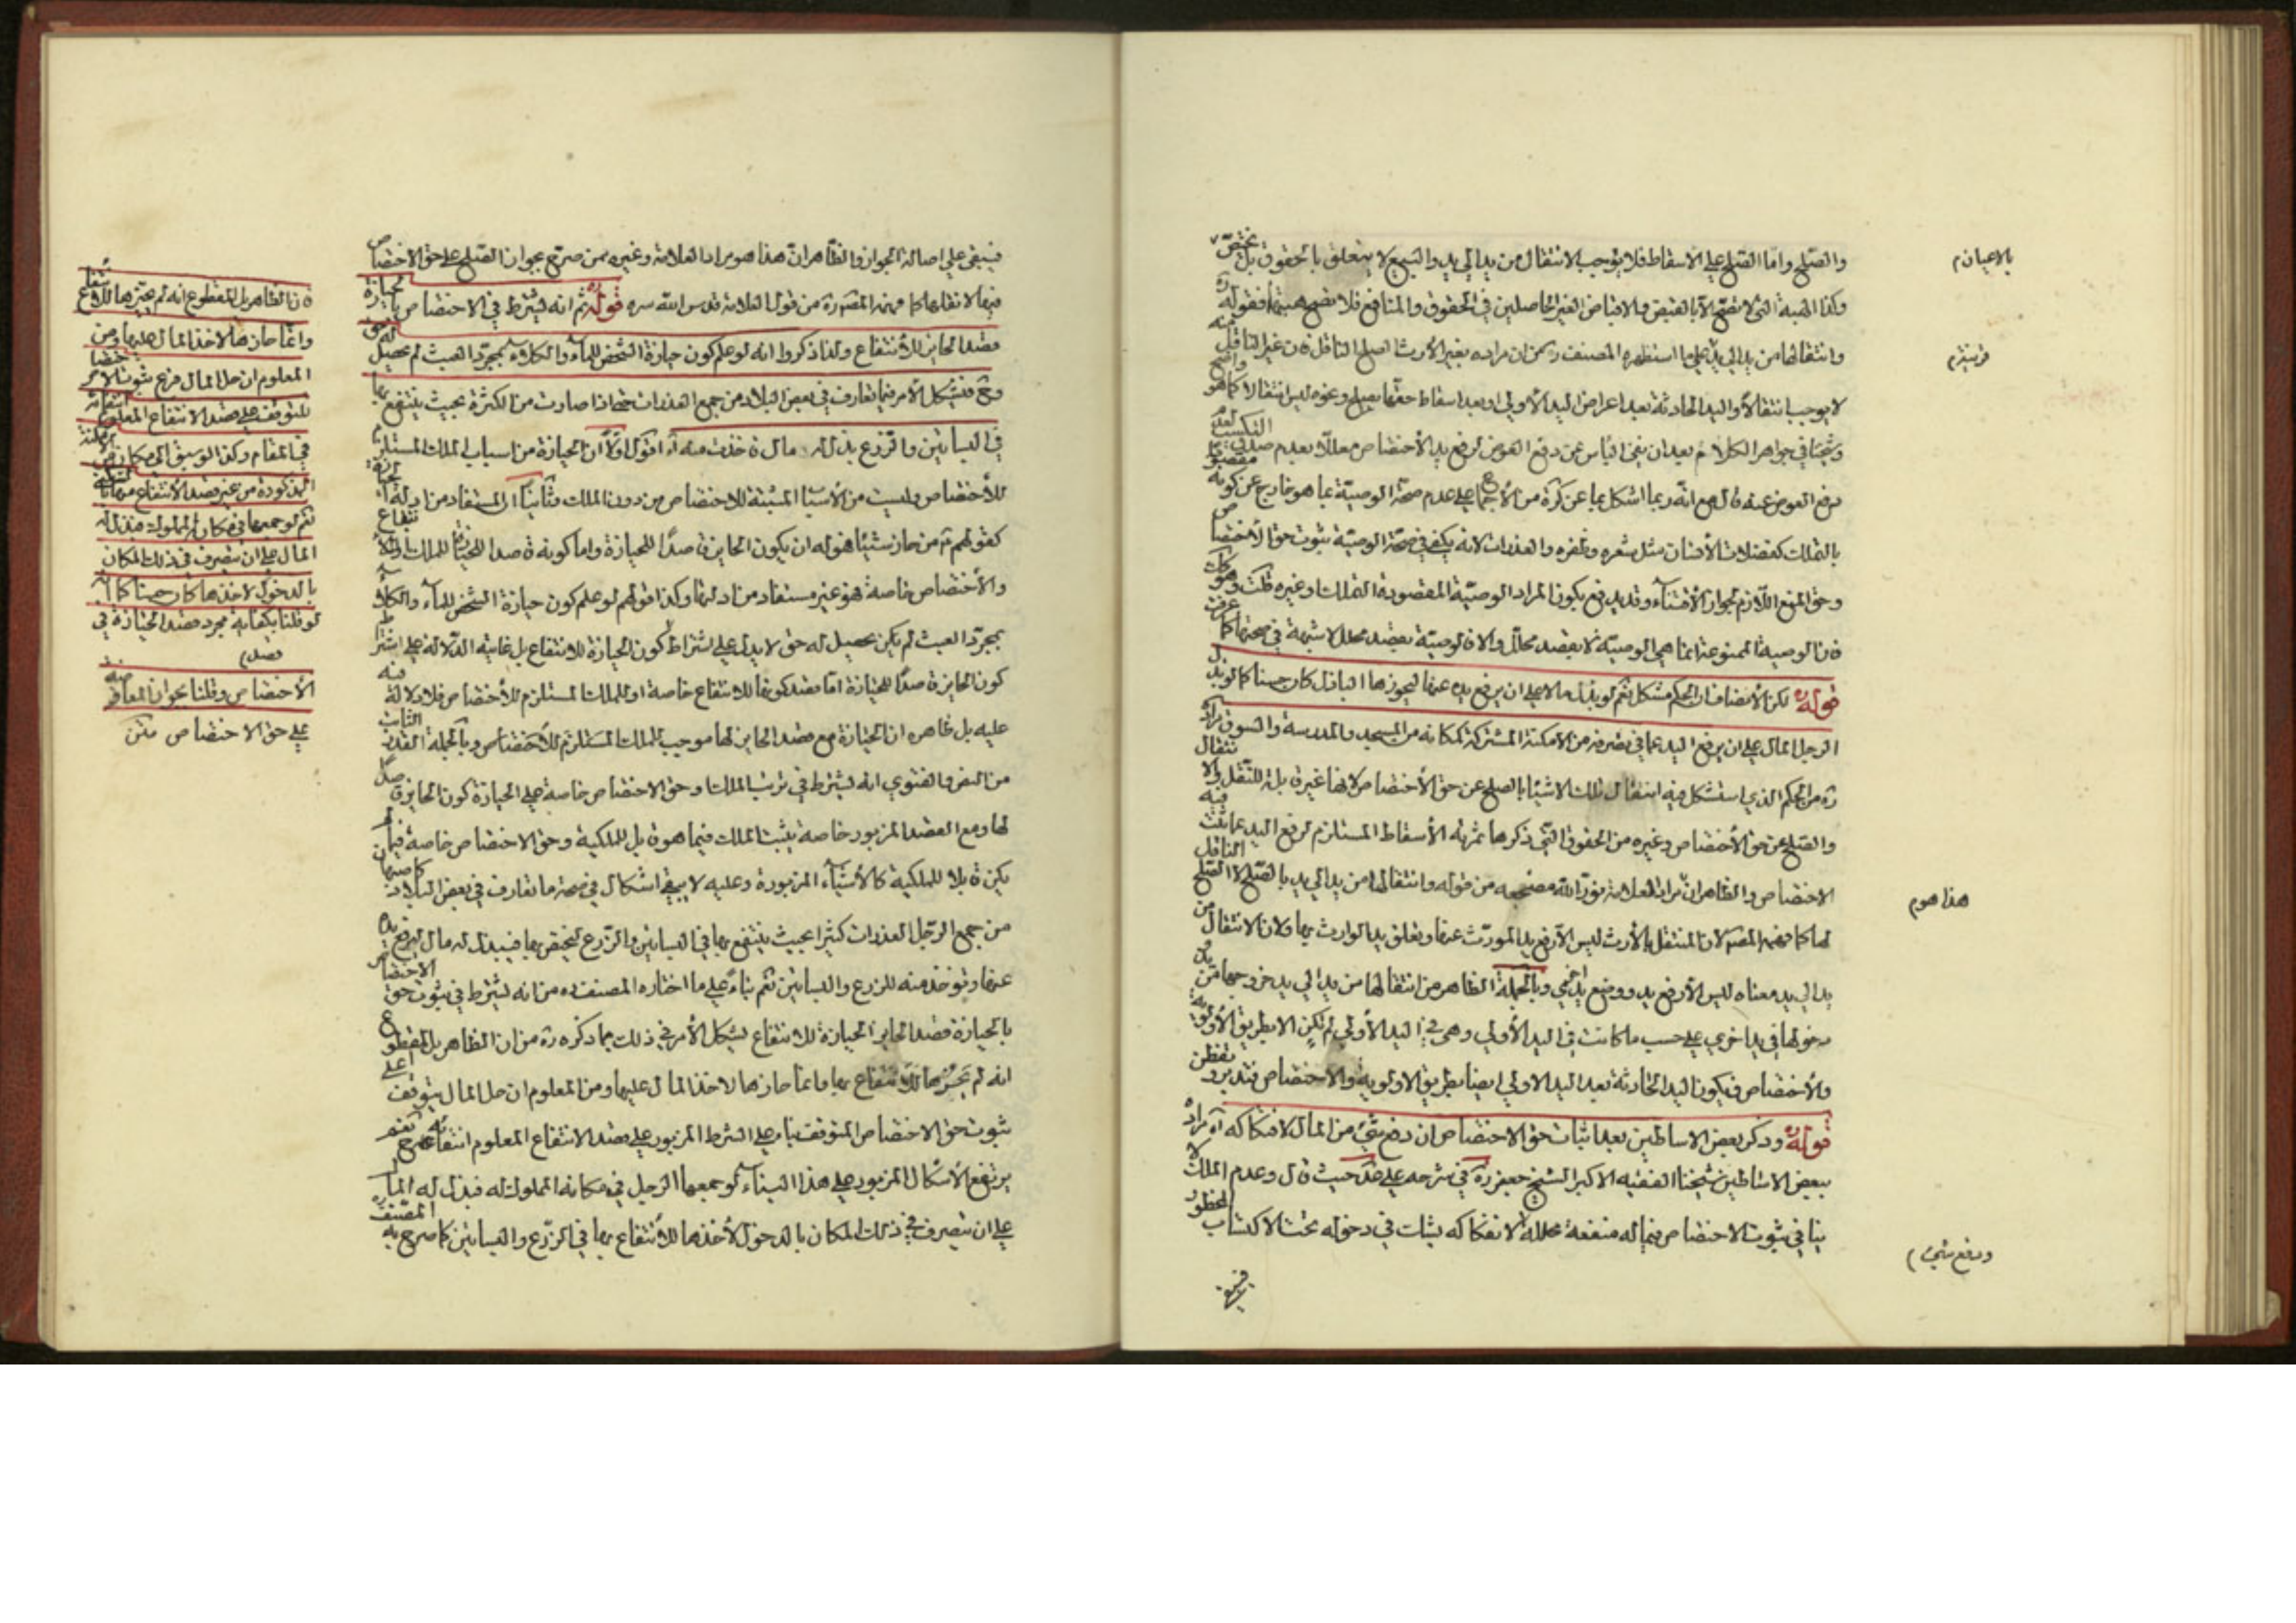 والصلح واما الصلح على الاسقاط فلا يوجب الانتقال من يد الى يد والبيع لا يتعلق بالحقوق بل يختص
بالاعيان م
وكذا الهبة التي لا تصح الا بالقبض والاقباض الغير الحاصلين في الحقوق والمنافع فلا تصح هبتها فقوله ره
وانتقالها من يد الى يد على ما استظهره المصنف ره من ان مراده بغير الارث الصلح الناقل فان غير الناقل منه
قرينة م
لا يوجب انتقالا واليد الحادثة بعد اعراض اليد الاولى او بعد اسقاط حقها بصلح وغيره ليس انتقالا كما هو واضح
وشيخنا في جواهر الكلام بعد ان نفى الباس عن دفع العوض لرفع يد الاختصاص معللا بعدم صدق التكسب
دفع العوض عنه قال مع انه ربما اشكل بما عن كرة من الاجماع على عدم صحة الوصية بما هو خارج عن كونه مقصودا
بالتملك كفضلات الانسان مثل شعره وظفره والعذرات لانه يكفي في صحة الوصية ثبوت حق الاختصاص
وحق المنع اللازم لجواز الاقتناء وقد يدفع بكون المراد الوصية المقصود بها التملك وغيره قلت وهو كك
فان الوصية الممنوعة انما هي الوصية لا بقصد محلل والا فالوصية بقصد محلل لا شبهة في صحتها كما عرفت
قوله ره لكن الانصاف ان الحكم مشكل نعم لو بذل مالا على ان يرفع يده عنها ليحوزها الباذل كان حسنا كما لو بذل
الرجل المال على ان يرفع اليد عما في تصرفه من الامكنة المشتركة كمكانه من المسجد والمدرسة والسوق مراده
ره من الحكم الذي استشكل فيه انتقال تلك الاشياء بالصلح عن حق الاختصاص لانها غير قابلة للنقل والانتقال
والصلح عن حق الاختصاص وغيره من الحقوق التي ذكرها ثمرته الاسقاط المستلزم لرفع اليد عما ثبت فيه
الاختصاص والظاهر ان مراد العلامة نور الله مضجعه من قوله وانتقالها من يد الى يد بالصلح لا الصلح الناقل
هذا هو م
لها كما فهمه المصنف ره لان المنتقل بالارث ليس الا رفع يد المورث عنها وتعلق يد الوارث بها ولان الانتقال من
يد الى يد معناه ليس الا رفع يد ووضع يد اخرى وبالجملة الظاهر من انتقالها من يد الى يد خروجها من يد
دخولها في يد اخرى على حسب ما كانت في اليد الاولى وهي في اليد الاولى لم تكن الا بطريق الاولوية
والاختصاص فيكون اليد الحادثة بعد اليد الاولى ايضا بطريق الاولوية والاختصاص فتدبر وتفطن
قوله ره وذكر بعض الاساطين بعد اثبات حق الاختصاص ان دفع شيء من المال لافتكاكه آه مراده
ببعض الاساطين شيخنا الفقيه الاكبر الشيخ جعفر ره في شرحه على عد حيث قال وعدم الملك لا
ينافي ثبوت الاختصاص فيما له منفعة محللة لافتكاكه يشك في دخوله تحت الاكتساب المحظور
ودفع شيء
فيبقى
فيبقى على اصالة الجواز والظاهر ان هذا هو مراد العلامة وغيره ممن صرح بجواز الصلح على حق الاختصاص
فيها لانتقالها كما فهمه المصنف ره من قول العلامة قدس الله سره قوله ره ثم انه يشترط في الاختصاص بالحيازة
قصد الحايز للانتفاع ولذا ذكروا انه لو علم كون حيازة الشخص للماء والكلاء بمجرد العبث لم يحصل له حق
وح فيشكل الامر فيما تعارف في بعض البلاد من جمع العذرات حتى اذا صارت من الكثرة بحيث ينتفع بها
في البساتين والزرع بذل له مال فاخذت منه آه اقول اولا ان الحيازة من اسباب الملك المستلزم
للاختصاص وليست من الاسباب المثبتة للاختصاص من دون الملك وثانيا ان المستفاد من ادلة الحيازة
كقولهم ع من حاز شيئا هو له ان يكون الحايز قاصدا للحيازة واما كونه قاصدا للحيازة للملك والانتفاع
والاختصاص خاصة فهو غير مستفاد من ادلتها وكذا قولهم لو علم كون حيازة الشخص للماء والكلاء
بمجرد العبث لم يكن يحصل له حق لا يدل على اشتراط كون الحيازة للانتفاع بل غايته الدلالة على اشتراط
كون الحايز قاصدا للحيازة اما قصد كونها للانتفاع خاصة او للملك المستلزم للاختصاص فلا دلالة فيه
عليه بل ظاهره ان الحيازة مع قصد الحايز لها موجب للملك المستلزم للاختصاص وبالجملة القدر الثابت
من النص والفتوى انه يشترط في ترتب الملك وحق الاختصاص خاصة على الحيازة كون الحايز قاصدا
لها ومع القصد المزبور خاصة يثبت الملك فيما هو قابل للملكية وحق الاختصاص خاصة فيما لم
يكن قابلا للملكية كالاشياء المزبورة وعليه لا يبقى اشكال في صحة ما تعارف في بعض البلاد
من جمع الرجل العذرات كثيرا بحيث ينتفع بها في البساتين والزرع ليختص بها فيبذل له مال ليرفع يده
عنها وتؤخذ منه للزرع والبساتين نعم بناء على ما اختاره المصنف ره من انه يشترط في ثبوت حق الاختصاص
بالحيازة قصد الحايز الحيازة للانتفاع يشكل الامر في ذلك بما ذكره ره من ان الظاهر بل المقطوع
انه لم يحزها للانتفاع بها وانما حازها لاخذ المال عليها ومن المعلوم ان حل المال يتوقف على
ثبوت حق الاختصاص المتوقف بناء على الشرط المزبور على قصد الانتفاع المعلوم انتفاؤه نعم
يرتفع الاشكال المزبور على هذا البناء لو جمعها الرجل في مكانه المملوك له فبذل له المال
على ان يتصرف في ذلك المكان بالدخول لاخذها للانتفاع بها في الزرع والبساتين كما صرح به المصنف ره
فان الظاهر بل المقطوع انه لم يحزها للانتفاع
وانما حازها لاخذ المال عليها ومن
المعلوم ان حل المال فرع ثبوت الاختصاص
المتوقف على قصد الانتفاع المعلوم انتفاؤه
في المقام وكذا لو سبق الى مكان من الامكنة
المذكورة من غير قصد الانتفاع منها بالسكنى
نعم لو جمعها في مكانه المملوك فبذل له
المال على ان يتصرف في ذلك المكان
بالدخول لاخذها كان حسنا كما انه
لو قلنا بكفاية مجرد قصد الحيازة في
الاختصاص وقلنا بجواز المعاوضة
على حق الاختصاص